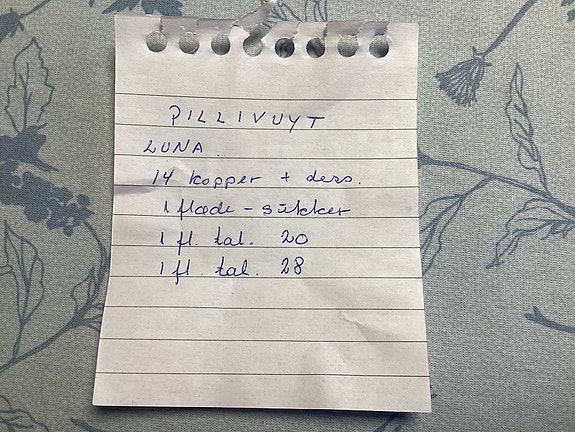 PILLIVUYT
LUNA.
14 kopper + dess.
1 fløde - sukker
1 fl. tal. 20
1 fl. tal. 28